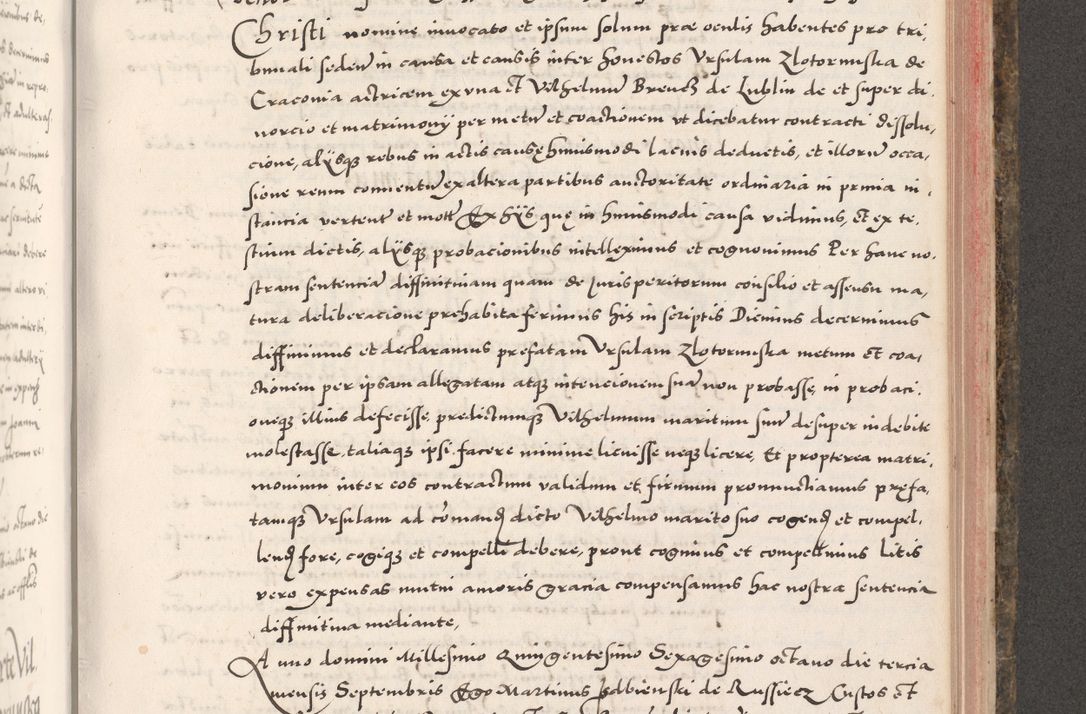 Christi nomine invocato et ipsum solum præ oculis habentes pro tri,
bunali seden̄ in causa et causis inter honestos Ursulam Zlotorniska de
Cracovia actricem ex una et Vilhelmū Brenek de Lublin de et super di,
vorcio et matrimonÿ per metū et coactionem ut dicebatur contracti dissolu,
cione, alÿsqꝫ rebus in actis causę huiusmodi lacius deductis, et illorū occa,
sione reum conventū ex altera partibus auctoritate ordinaria in prima in,
stancia verten̄ et mot̄ Ex hÿs quę in huiusmodi causa vidimus, et ex te,
stium dictis, alÿsqꝫ probacionibus intelleximus et cognovimus Per hanc no,
stram sentenciā diffinitivam quam de Jurisperitorum consilio et assensu ma,
tura deliberacione prehabita ferimus his in scriptis Dicimus decernimus
diffinimus et declaramus prefatam Ursulam Zlotorniska metum et coa,
ctionem per ipsam allegatam atqꝫ intencionem suā non probasse, in probaci,
oneqꝫ illius defecisse, predictumqꝫ Vilhelmum maritum suū desuper indebite
molestasse, taliaqꝫ ipsi facere minime licuisse neqꝫ licere, Et propterea matri,
monium inter eos contractum validum et firmum pronunctiamus prefa,
tamqꝫ Ursulam ad cōmand̄ dicto Vilhelmo marito suo cogend̄ et compel,
lend̄ fore, cogiqꝫ et compelli debere, prout cogimus et compellimus Litis
vero expensas mutui amoris gracia compensamus hac nostra sentencia
diffinitiva mediante,
Anno domini Millesimo Quingentesimo Sexagesimo octavo die tercia
mensis Septembris Ego Martinus Izdbienski de Russiecz Custos et